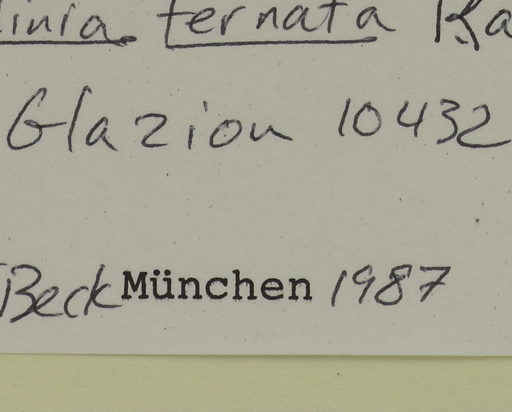 inia ternata Ra
Glaziou 10432
Beck München 1987